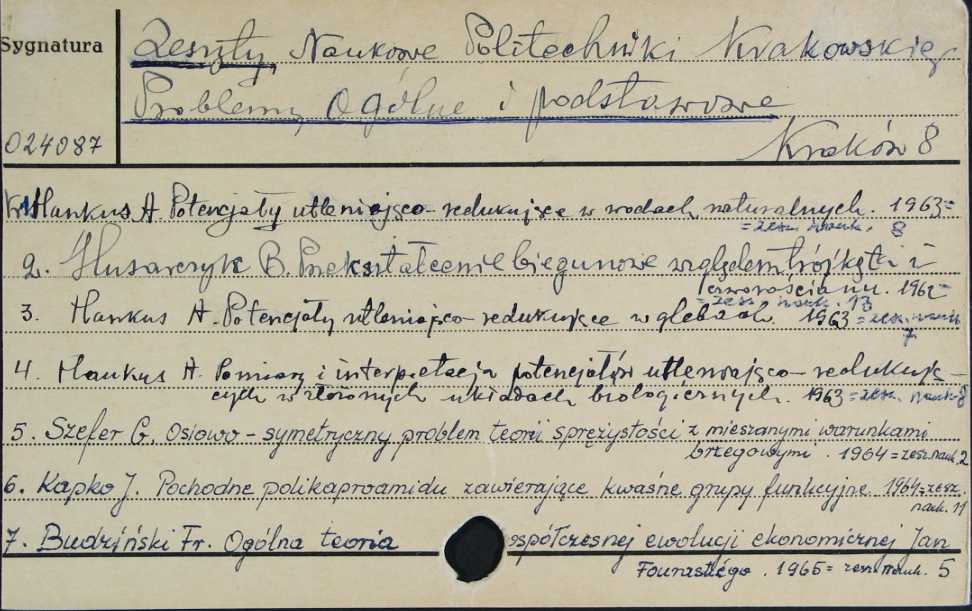 Sygnatura
Zeszyty Naukowe Politechniki Krakowskiej
Problemy Ogólne i podstawowe
024087
Kraków 8
1. Hankus A Potencjały utleniająco-redukujące w wodach naturalnych. 1963=
=zesz. nauk. 8
2. Husarczyk B. Przekształcenie biegunowe względem trójkąta i
1962=
=zesz. nauk. 13
3. Hankus A. Potencjały utleniająco-redukujące w glebach. 1963=zesz. nauk
7
4. Hankus A. Pomiary i interpretacja potencjałów utleniająco-redukują-
cych w złożonych układach biologicznych. 1963=zesz. nauk 8
5. Szefer G. Osiowo-symetryczny problem teorii sprężystości z mieszanymi warunkami
brzegowymi. 1964=zesz. nauk. 2
6. Kapko J. Pochodne polikaproamidu zawierające kwaśne grupy funkcyjne. 1964=zesz.
nauk. 11
7. Budziński Fr. Ogólna teoria współczesnej ewolucji ekonomicznej Jan
Fourastiégo. 1965=zesz. nauk. 5